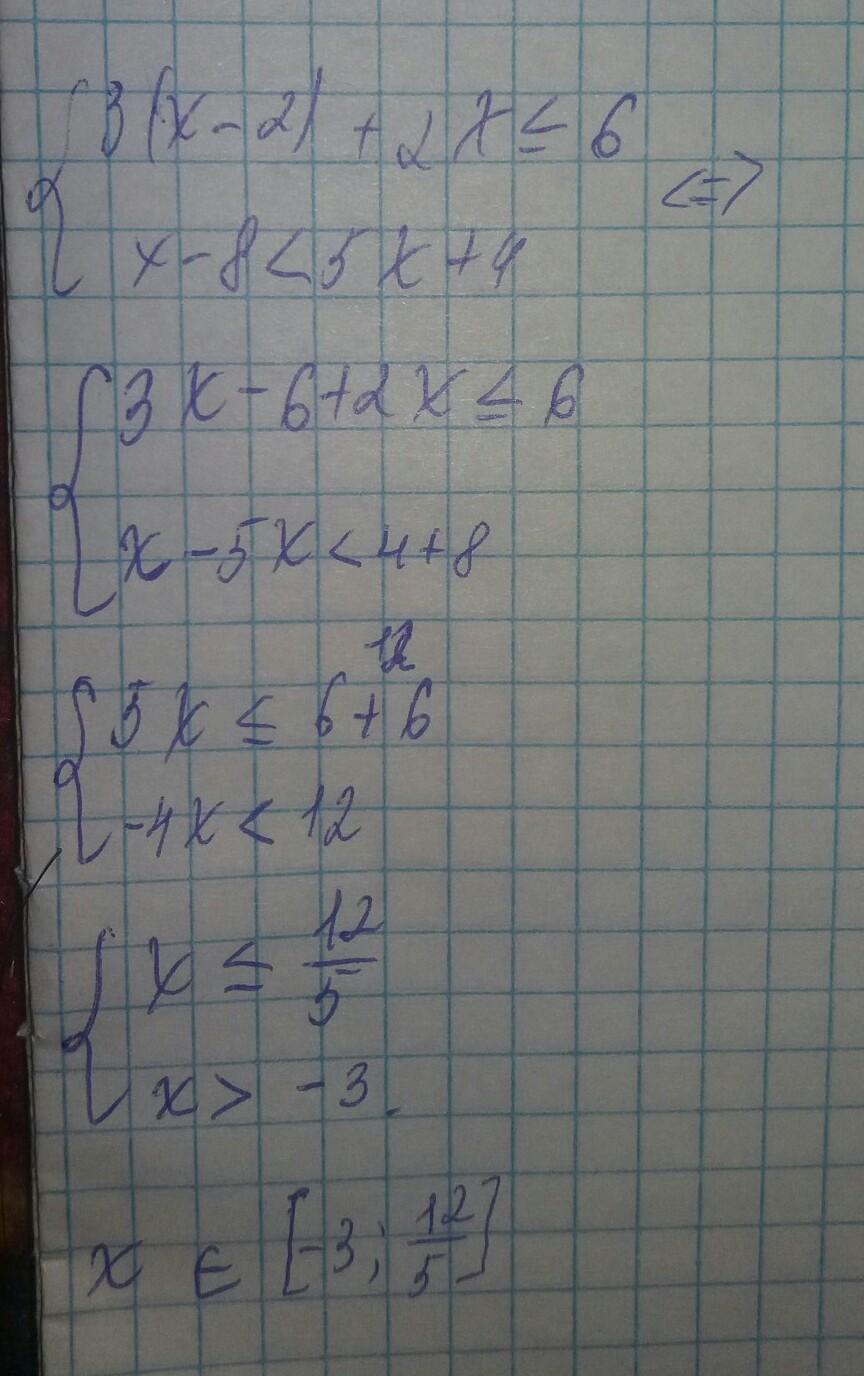 { 3(x-2) + 2x ≤ 6
x-8<5x+4 <=>
{ 3x-6+2x ≤ 6
x-5x<4+8
12
{ 5x ≤ 6+6
-4x < 12
{ x ≤ 12/5
x > -3.
x ∈ [-3; 12/5]